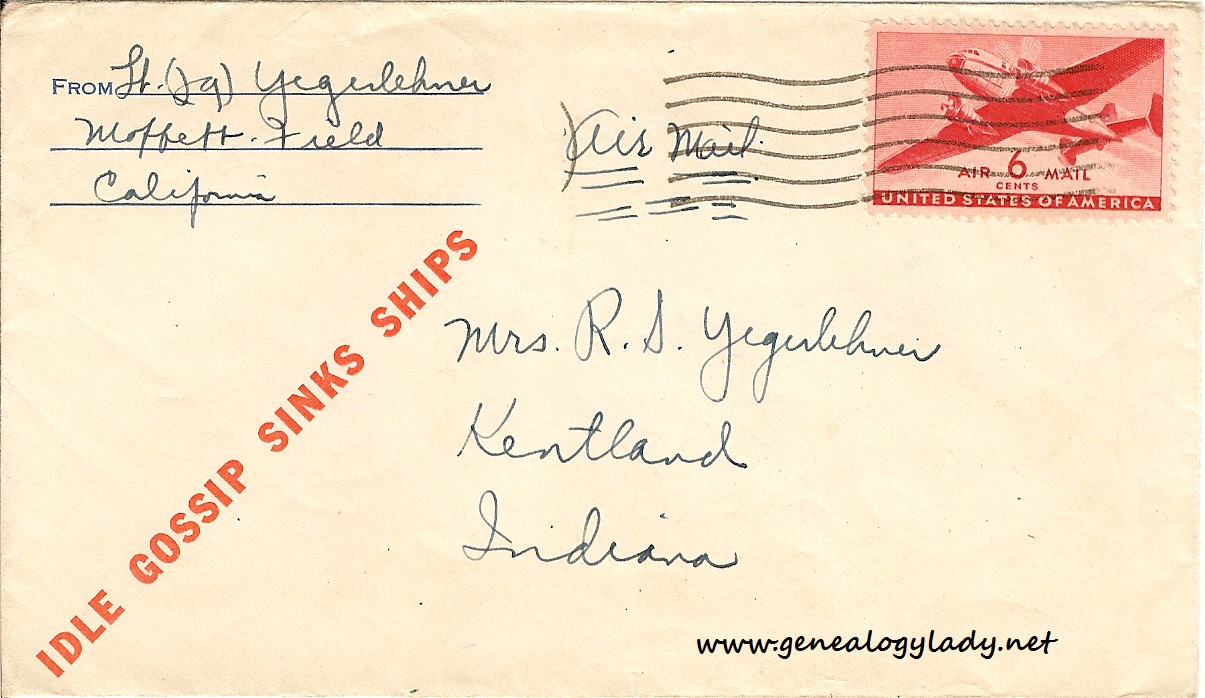 FROM Lt. (jg) Yegerlehner
Moffett Field
California
Air Mail
AIR 6 MAIL
CENTS
UNITED STATES OF AMERICA
IDLE GOSSIP SINKS SHIPS
Mrs. R. S. Yegerlehner
Kentland
Indiana
www.genealogylady.net